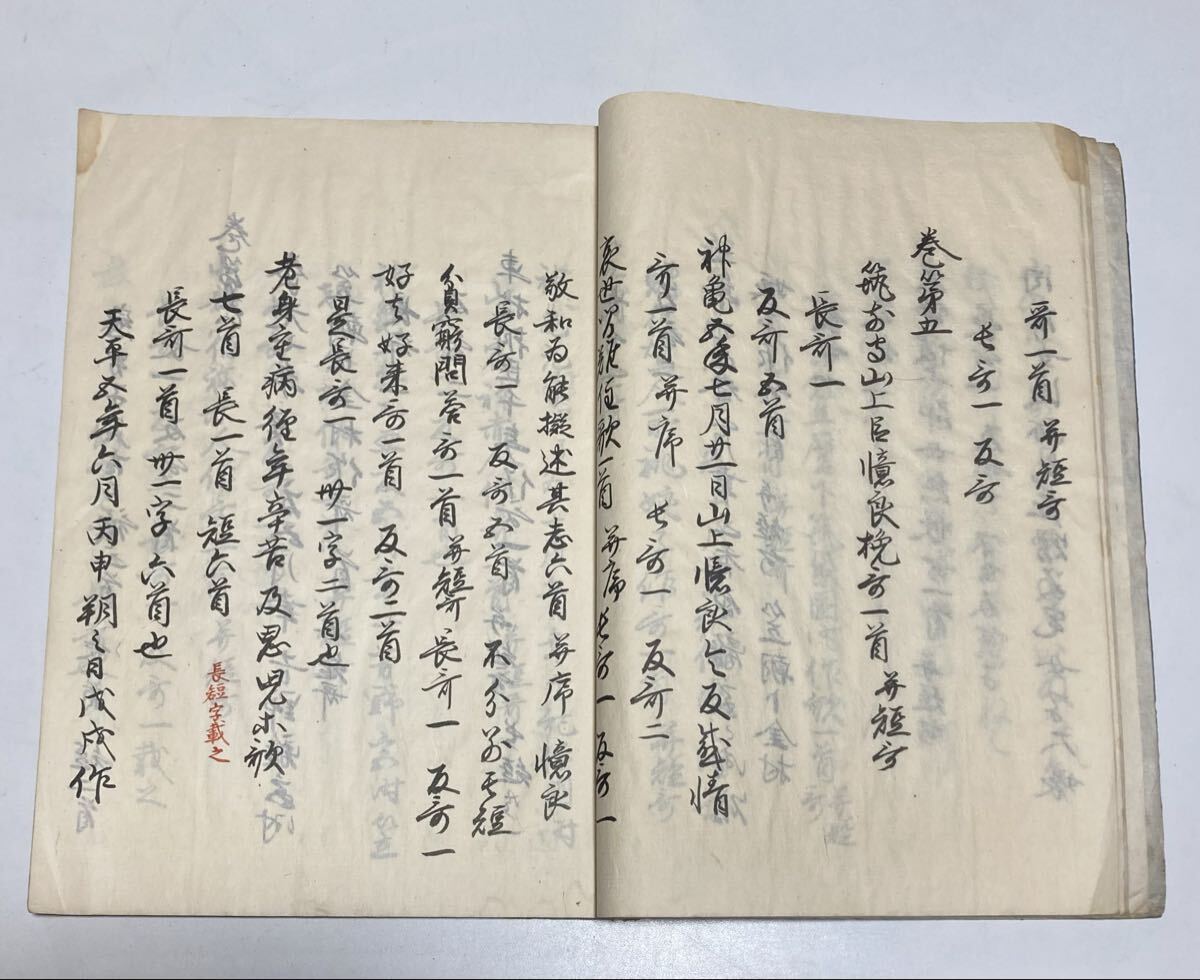 哥一首 并短哥
長哥一 反哥
巻第五
筑前守山上臣憶良挽哥一首 并短哥
長哥一
反哥五首
神亀五年七月廿一日山上憶良令反惑情
哥一首 并序 長哥一 反哥二
哀世間難住歌一首 并序 長哥一 反哥一
敬和為熊擬述其志六首 并序 憶良
長哥一 反哥五首 不分別長短
貧窮問答哥一首 并短哥 長哥一 反哥一
好去好来哥一首 反哥二首
是長哥一 卅一字二首也
老身重病経年辛苦及思児等歌
七首 長一首 短六首 長短字載之
長哥一首 卅一字六首也
天平五年六月丙申朔三日戊戌作